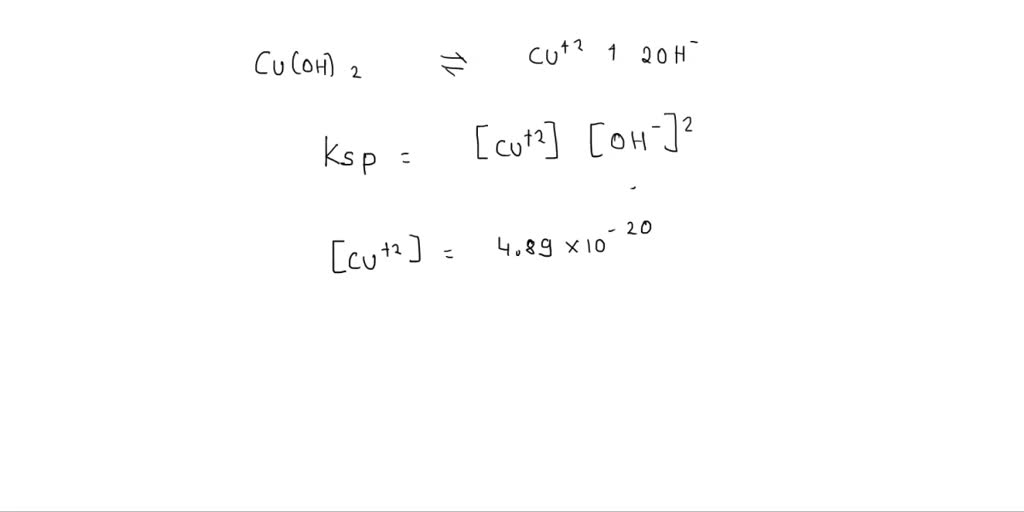 Cu(OH)₂ ⇌ Cu⁺² + 2OH⁻
Ksp = [Cu⁺²] [OH⁻]²
[Cu⁺²] = 4.89 × 10⁻²⁰